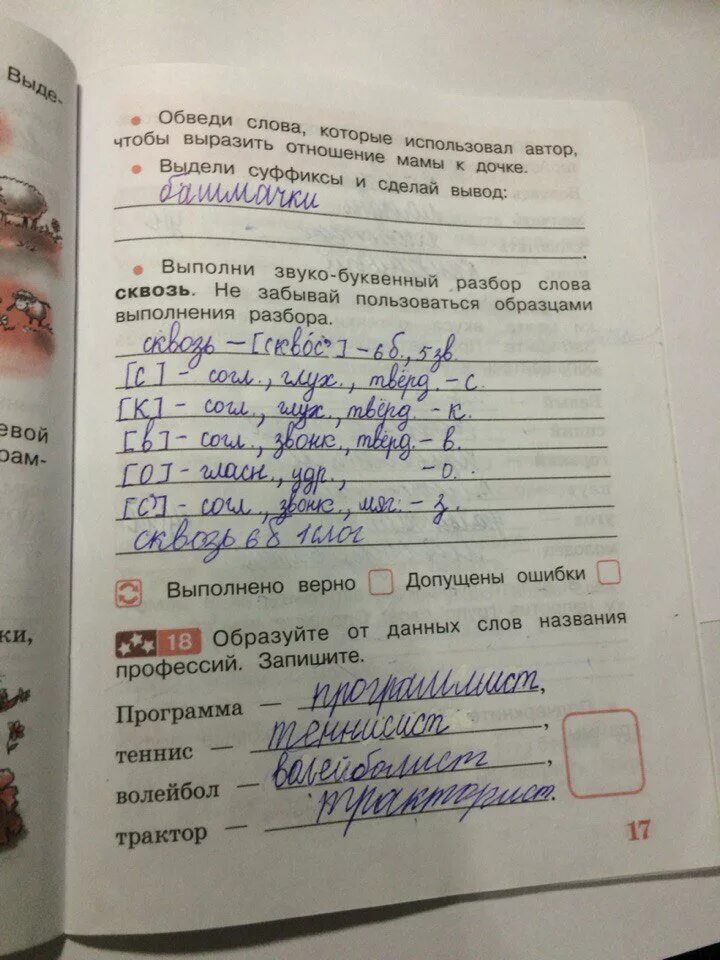 Выде-
• Обведи слова, которые использовал автор,
чтобы выразить отношение мамы к дочке.
• Выдели суффиксы и сделай вывод:
башмачки
• Выполни звуко-буквенный разбор слова
сквозь. Не забывай пользоваться образцами
выполнения разбора.
сквозь – [сквос'] – 6 б., 5 зв.
[с] - согл., глух., твёрд. - с.
[к] - согл., глух., твёрд. - к.
[в] - согл., звонк., твёрд. - в.
[о] - гласн., удр., - о.
[с'] - согл., звонк., мяг. - з.
сквозь 6 б 1 слог
Выполнено верно Допущены ошибки
18 Образуйте от данных слов названия
профессий. Запишите.
Программа — программист,
теннис — теннисист,
волейбол — волейболист,
трактор — тракторист.
17
евой
рам-
ки,